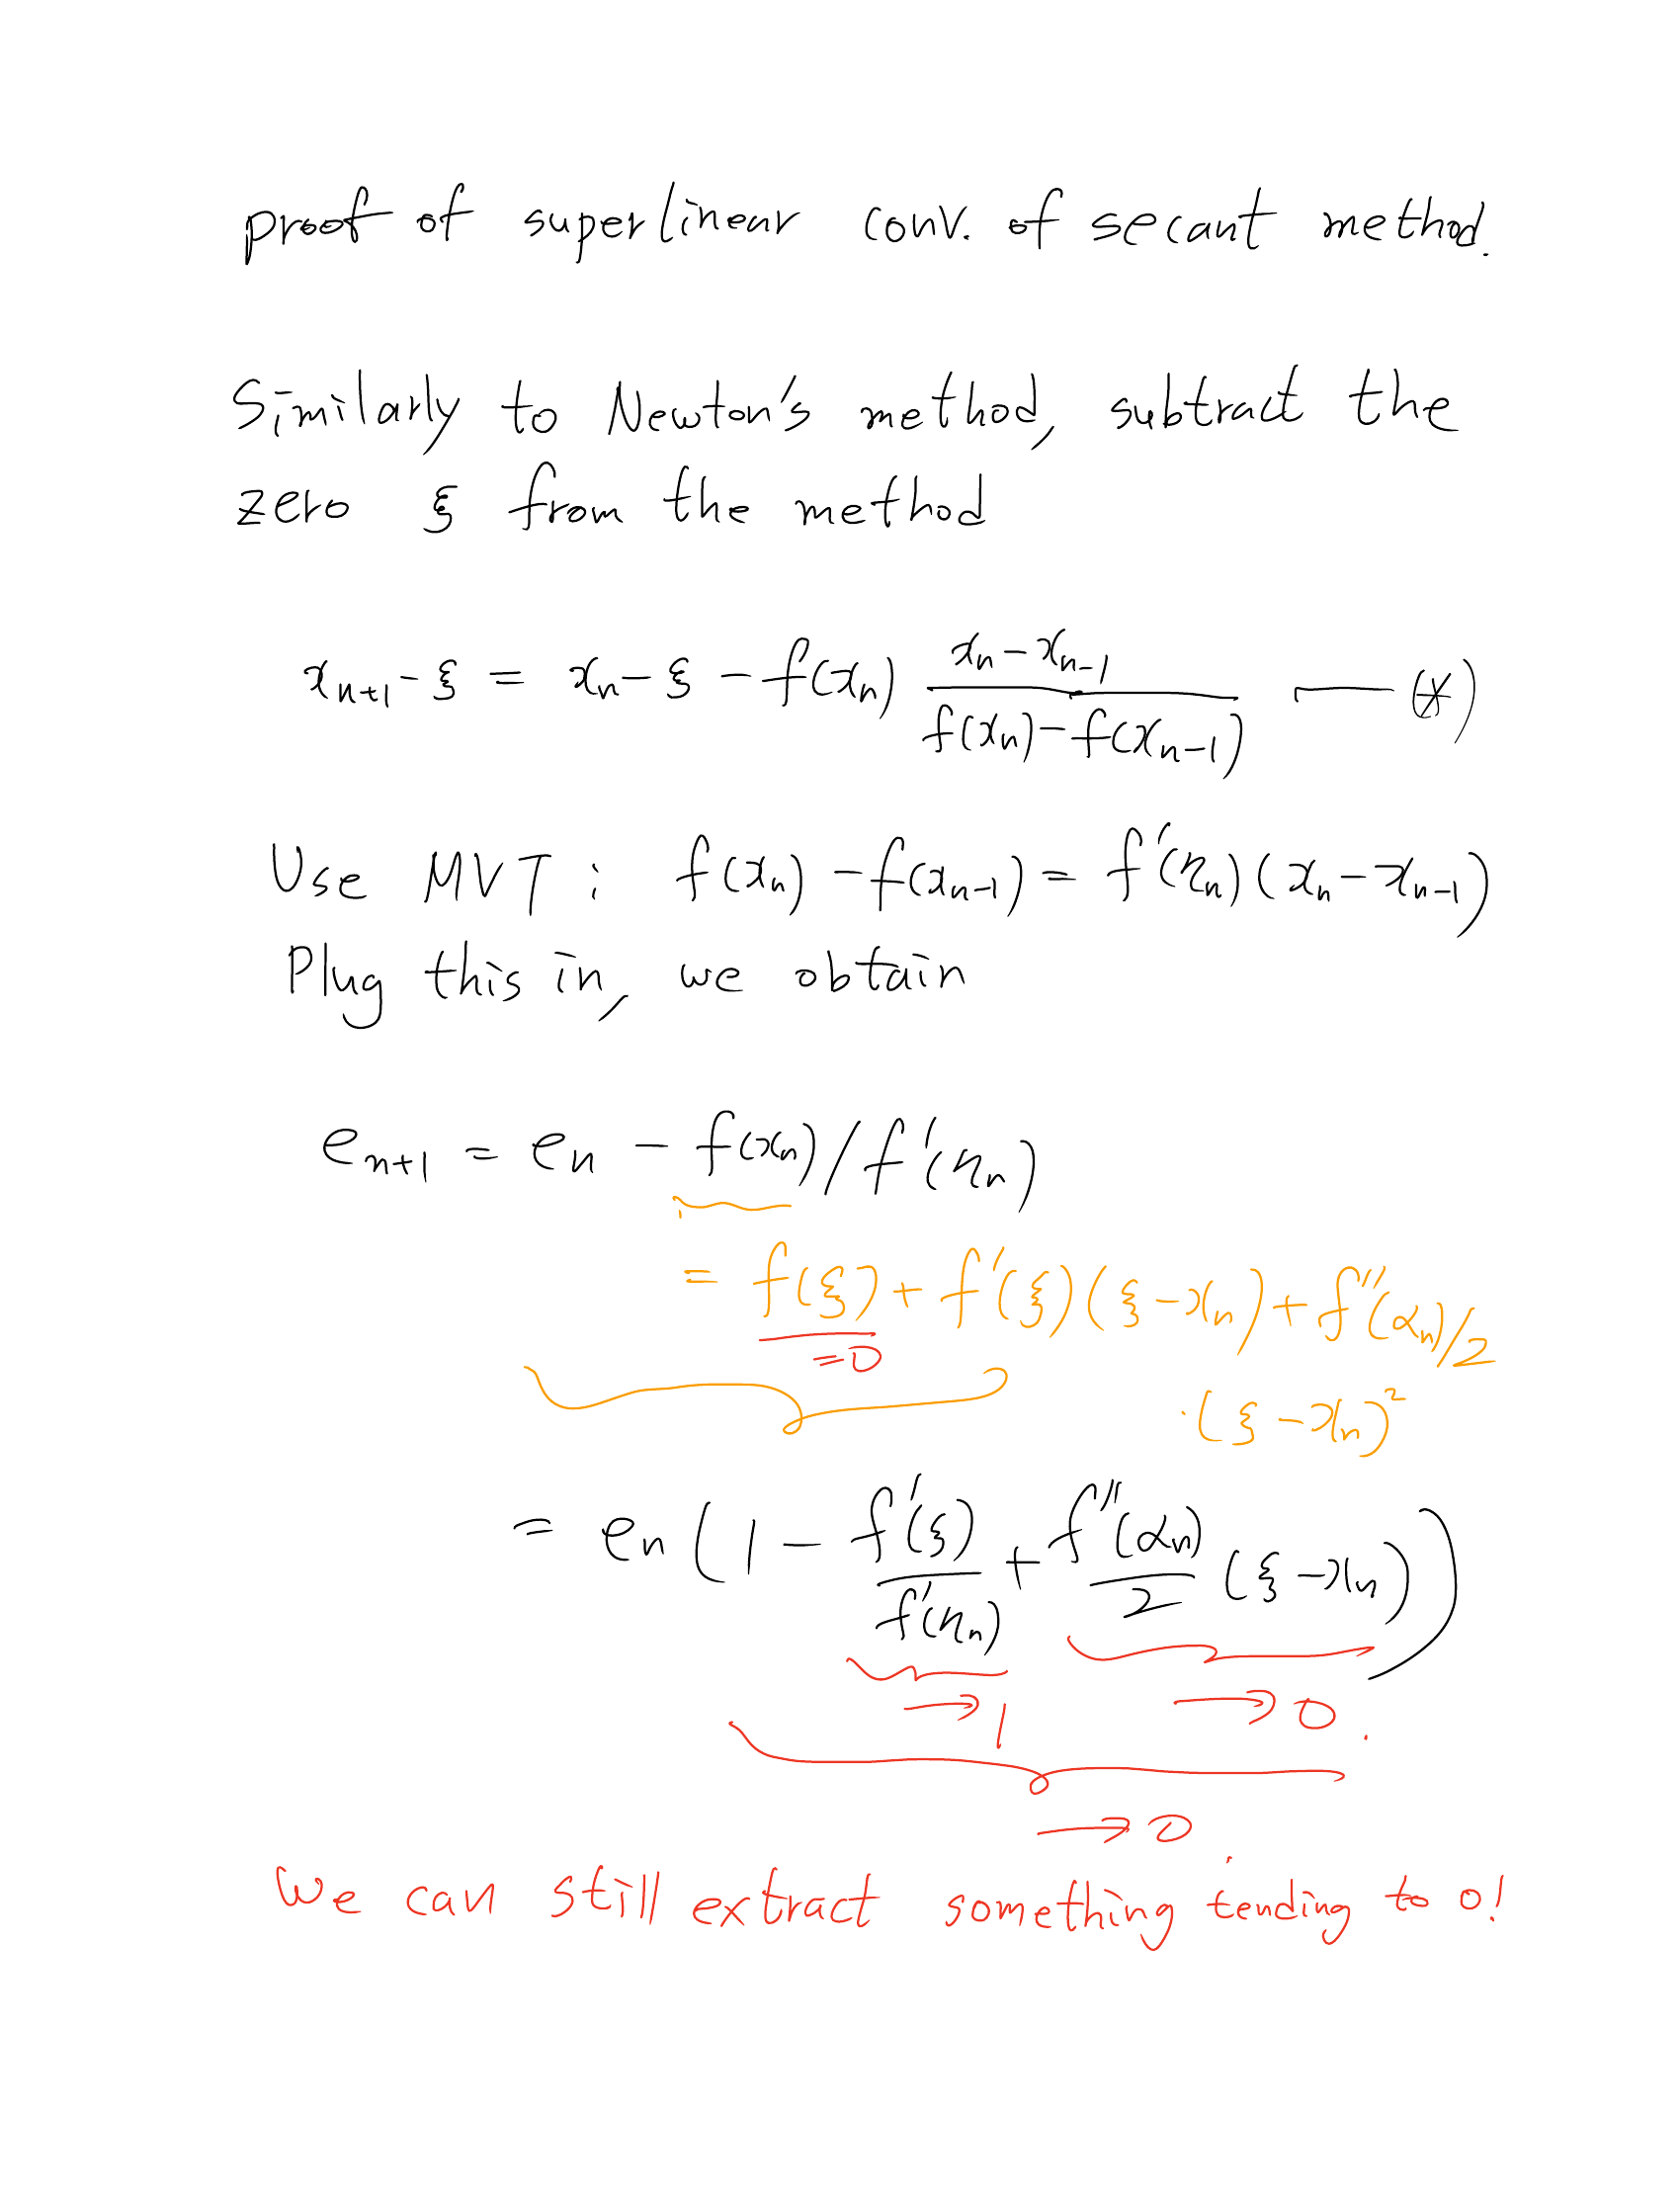 proof of superlinear conv. of secant method.
Similarly to Newton's method, subtract the
zero ξ from the method
x_{n+1} - ξ = x_n - ξ - f(x_n) (x_n - x_{n-1}) / (f(x_n) - f(x_{n-1})) — (*)
Use MVT : f(x_n) - f(x_{n-1}) = f'(η_n)(x_n - x_{n-1})
Plug this in, we obtain
e_{n+1} = e_n - f(x_n) / f'(η_n)
= f(ξ) + f'(ξ)(ξ - x_n) + f''(α_n)/2
= 0
· (ξ - x_n)^2
= e_n (1 - f'(ξ) / f'(η_n) + f''(α_n) / 2 (ξ - x_n))
→ 1 → 0.
→ 0.
We can still extract something tending to 0!